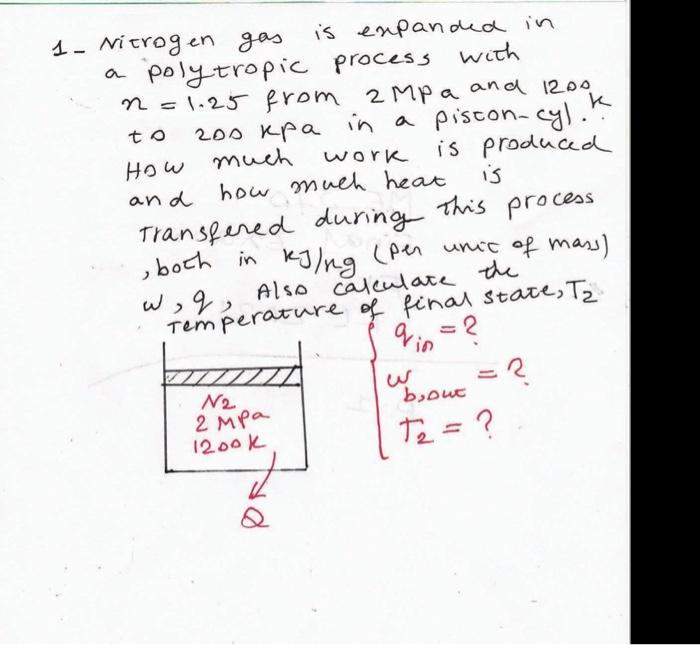 1- Nitrogen gas is expanded in
a polytropic process with
n = 1.25 from 2 MPa and 1200 K
to 200 kpa in a piston-cyl.
How much work is produced
and how much heat is
Transfered during this process
, both in kJ/kg (per unit of mass)
w, q, Also calculate the
Temperature of final state, T2
q in = ?
w b,out = ?
T2 = ?
N2
2 MPa
1200 K
Q